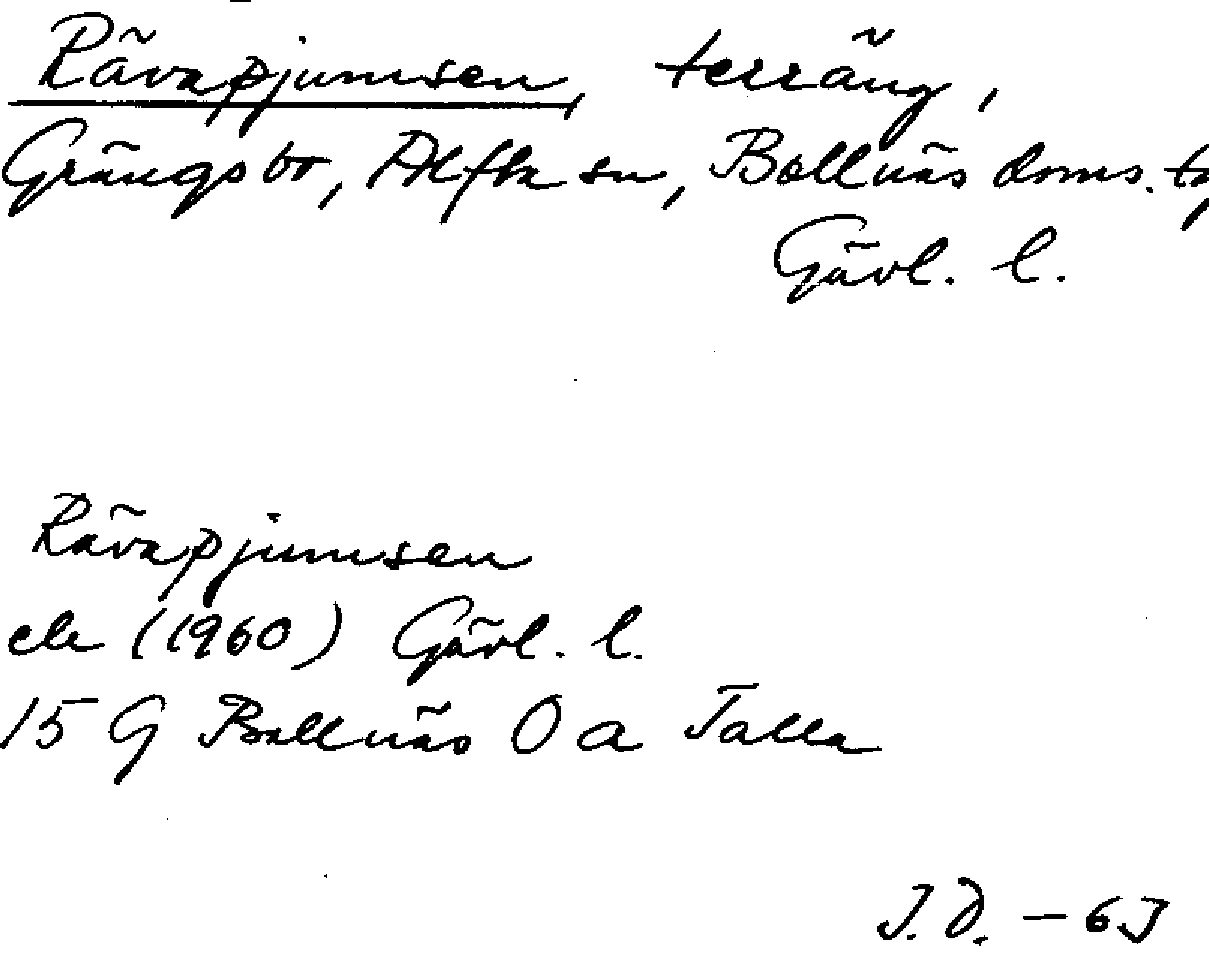 Rävapjumsen, terräng,
Grängsbo, Alfta sn, Bollnäs doms.
Gävl. l.
Rävapjumsen
ek (1960) Gävl. l.
15 G Bollnäs 0 a Talla